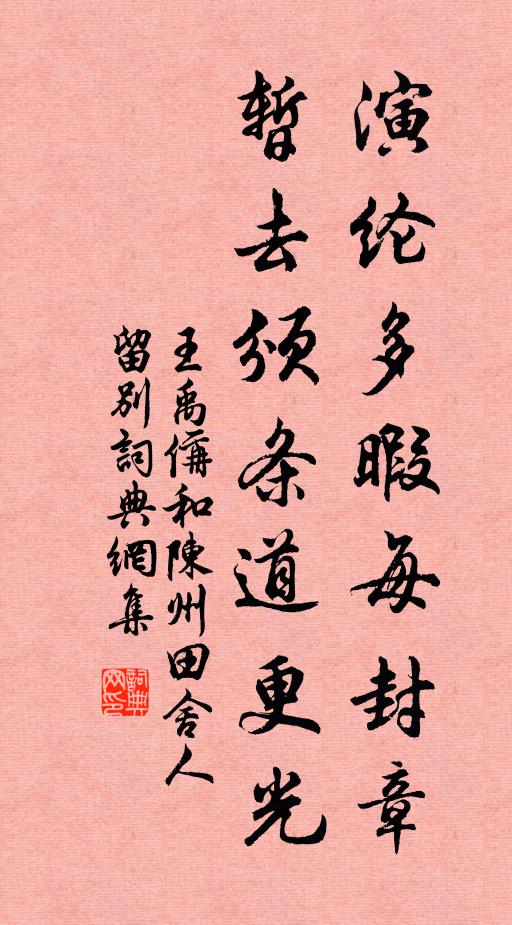 演纶多暇每封章
暂去颁条道更光
王禹偁和陳州田舍人
留别詞典網集
詞典
网印